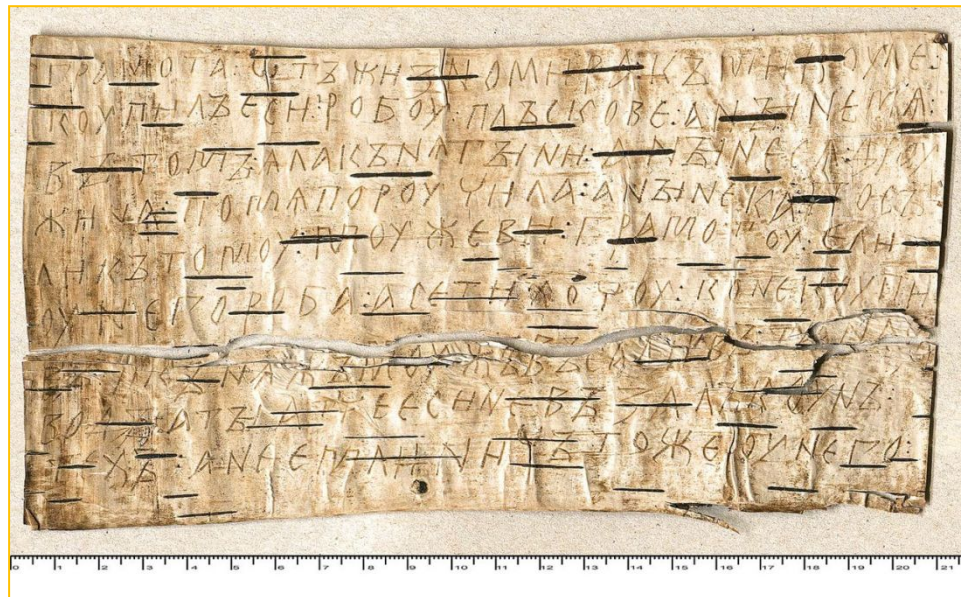 ГРАМОТА : ѠТЪ ЖИЗНОМИРА : КЪ МИКОУЛЕ :
КОУПИЛЪ ЕСИ : РОБОУ : ПЛЪСКОВЕ : А НЪІНЕ МѦ :
ВЪ ТОМЪ : ѦЛА КЪНѦГЪІНИ : А НЪІНЕ СѦ ДРОУ
ЖИНА : ПО МѦ ПОРОУЧИЛА : А НЪІНЕ КА : ПОСЪ
ЛИ КЪ ТОМОУ : МОУЖЕВИ : ГРАМОТОУ : Е ЛИ
ОУ НЕГО РОБА : А СЕ ТИ ХОЧОУ : КОНЕ КОУПИ
ВЪ : И КЪНѦЖЪ МОУЖЪ ВЪСАДИВЪ : ТА НА СЪ
ВОДЪІ : А ТЪІ АТЧЕ ЕСИ НЕ ВЪЗАЛЪ КОУНЪ :
ТЕХЪ : А НЕ ЕМЛИ : НИЧЪТО ЖЕ ОУ НЕГО :
0 1 2 3 4 5 6 7 8 9 10 11 12 13 14 15 16 17 18 19 20 21